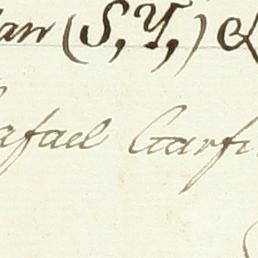 an (S, Y,) &
afael Garfi